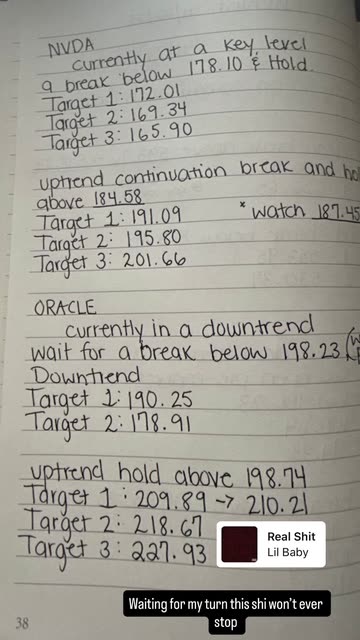 NVDA
currently at a key level
a break below 178.10 & Hold.
Target 1: 172.01
Target 2: 169.34
Target 3: 165.90
uptrend continuation break and ho
above 184.58
Target 1: 191.09 * watch 187.45
Target 2: 195.80
Target 3: 201.66
ORACLE
currently in a downtrend
wait for a break below 198.23
Downtrend
Target 1: 190.25
Target 2: 178.91
uptrend hold above 198.74
Target 1: 209.89 → 210.21
Target 2: 218.67
Target 3: 227.93
Real Shit
Lil Baby
Waiting for my turn this shi won't ever
stop
38